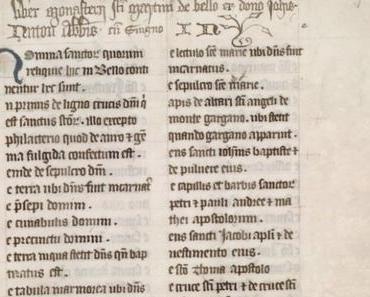 liber monasterij sti martini de bello ex dono Johis
Newton abbis. cu signo
Nomina sanctor quorum
reliquie hic in Bello conti
nentur hec sunt.
n primis de ligno crucis dni q
est sanctus stor. illo excepto
philacterio quod de auro ⁊ ge
ma fulgida confectum est.
emde de sepulcro dni.
e terra ubi dns fuit incarnat
e psepi domini.
e cunabulis domini.
e precinctu domini.
e terra in qua stetit dns qn bap
tizatus est.
e tabula marmorea ubi dns
e lectulo sce marie ubi dns fuit
incarnatus.
e sepulcro sce marie.
apis de altari sti angeli de
monte gargano. ubi stetit
quando gargano apparuit.
ens sancti iohnis baptiste ⁊
de puluere eius.
e capillis et barbis sanctor
petri ⁊ pauli andree ⁊ ma
thei apostolorum.
ens sancti Jacobi apli ⁊ de
uestimento eius.
e sco Thoma apostolo
e cruce sti petri ⁊ de cruce sti